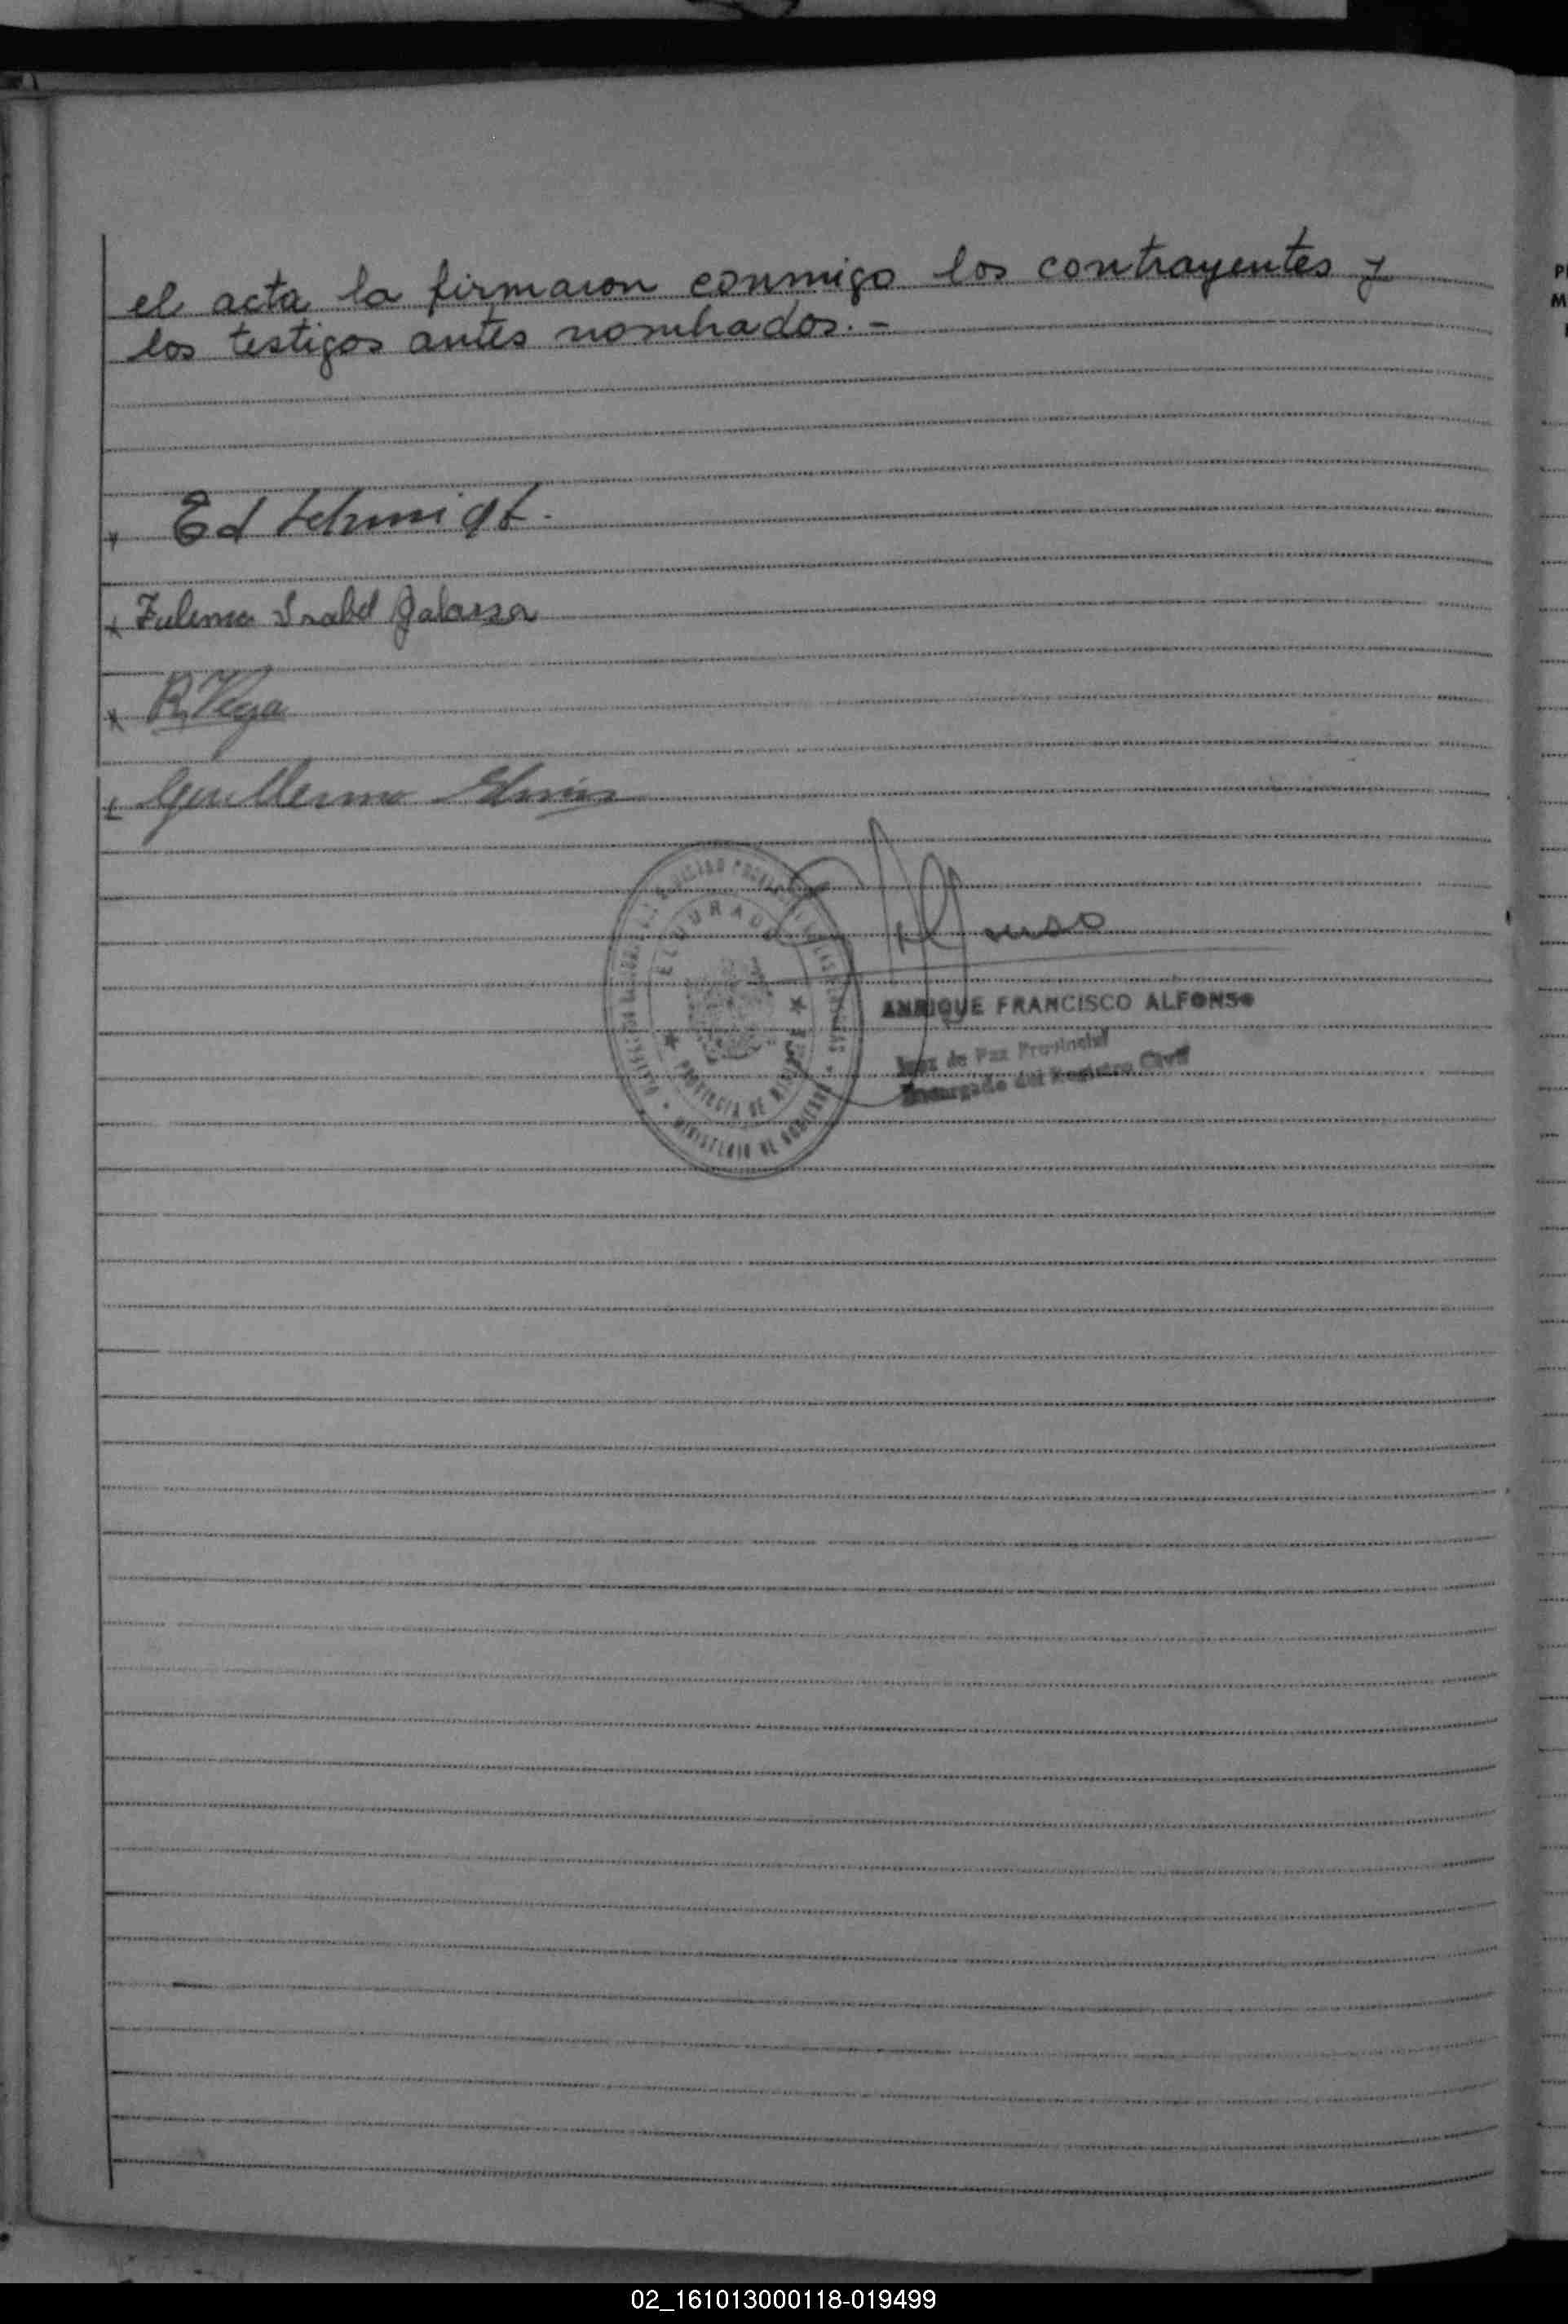 el acta la firmaron conmigo los contrayentes y
los testigos antes nombrados.-
Ed Schmidt.
Zulema Isabel Galarza
R. Vega
Guillermo
Alfonso
ELDORADO
PROVINCIA DE MISIONES
MINISTERIO DE GOBIERNO
ENRIQUE FRANCISCO ALFONSO
Juez de Paz Provincial
Encargado del Registro Civil
P
M
02_161013000118-019499